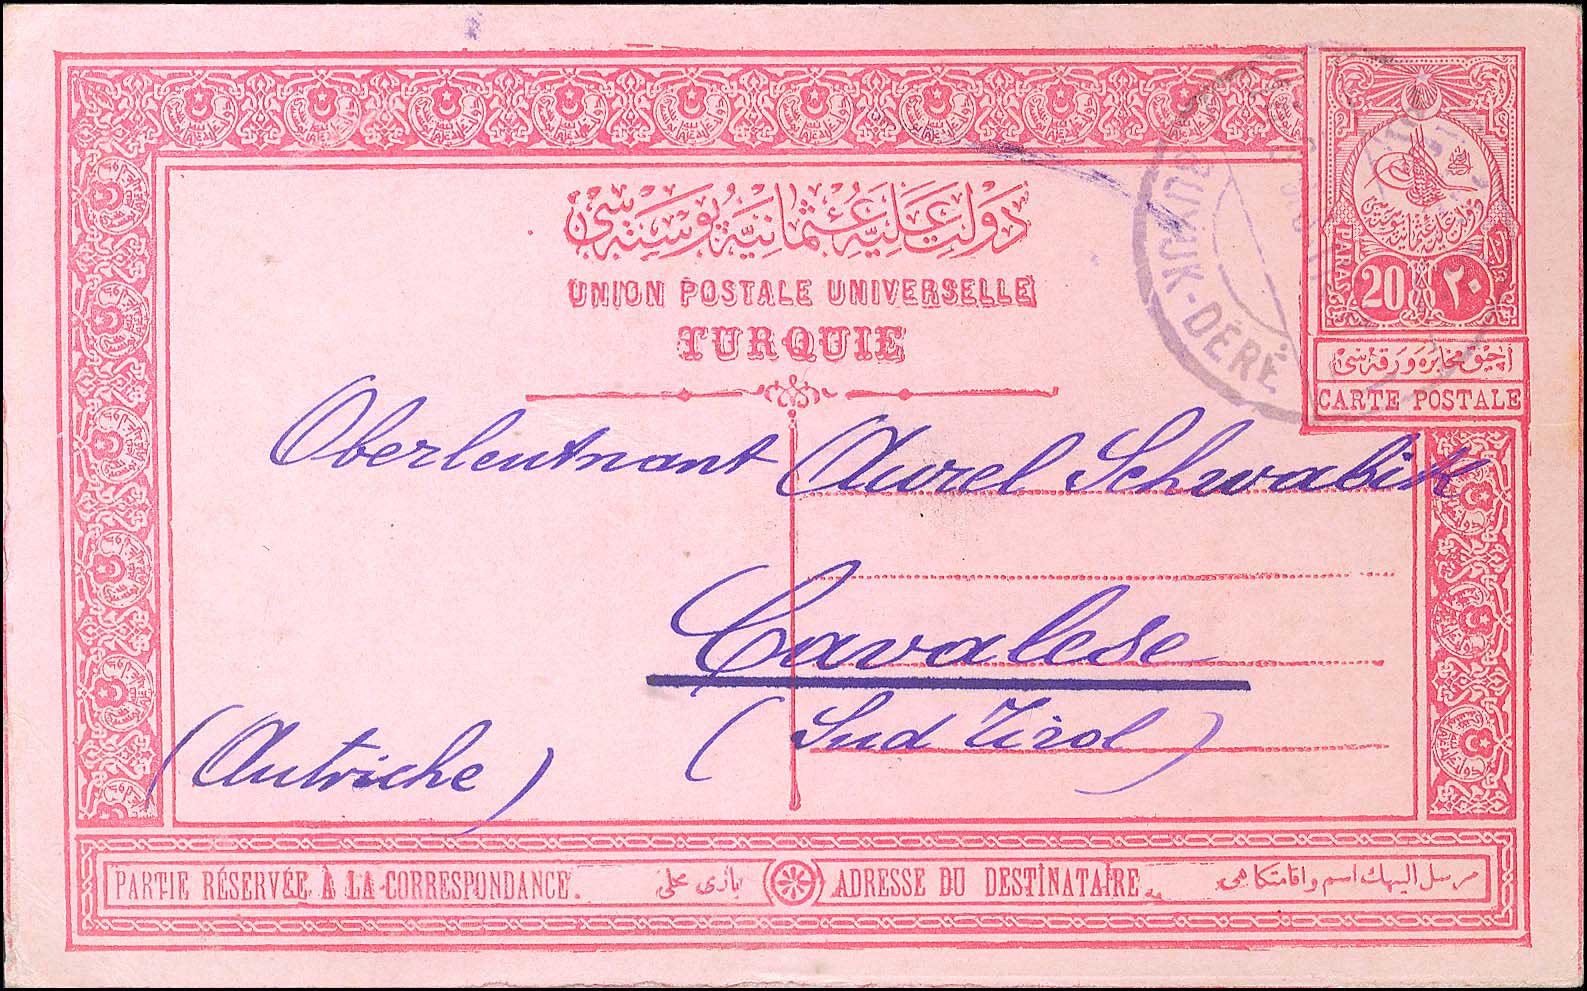 دولت عليۀ عثمانيه پوسته سى
UNION POSTALE UNIVERSELLE
TURQUIE
BUYUK-DÉRÉ
PARAS
20 ٢٠
آچيق مخابره ورقه سى
CARTE POSTALE
Oberleutnant Aurel Schwabik
Cavalese
(Sud Tirol)
(Autriche)
PARTIE RÉSERVÉE À LA CORRESPONDANCE.
يازى محلى
ADRESSE DU DESTINATAIRE
مرسل اليهك اسم و اقامتكاهى